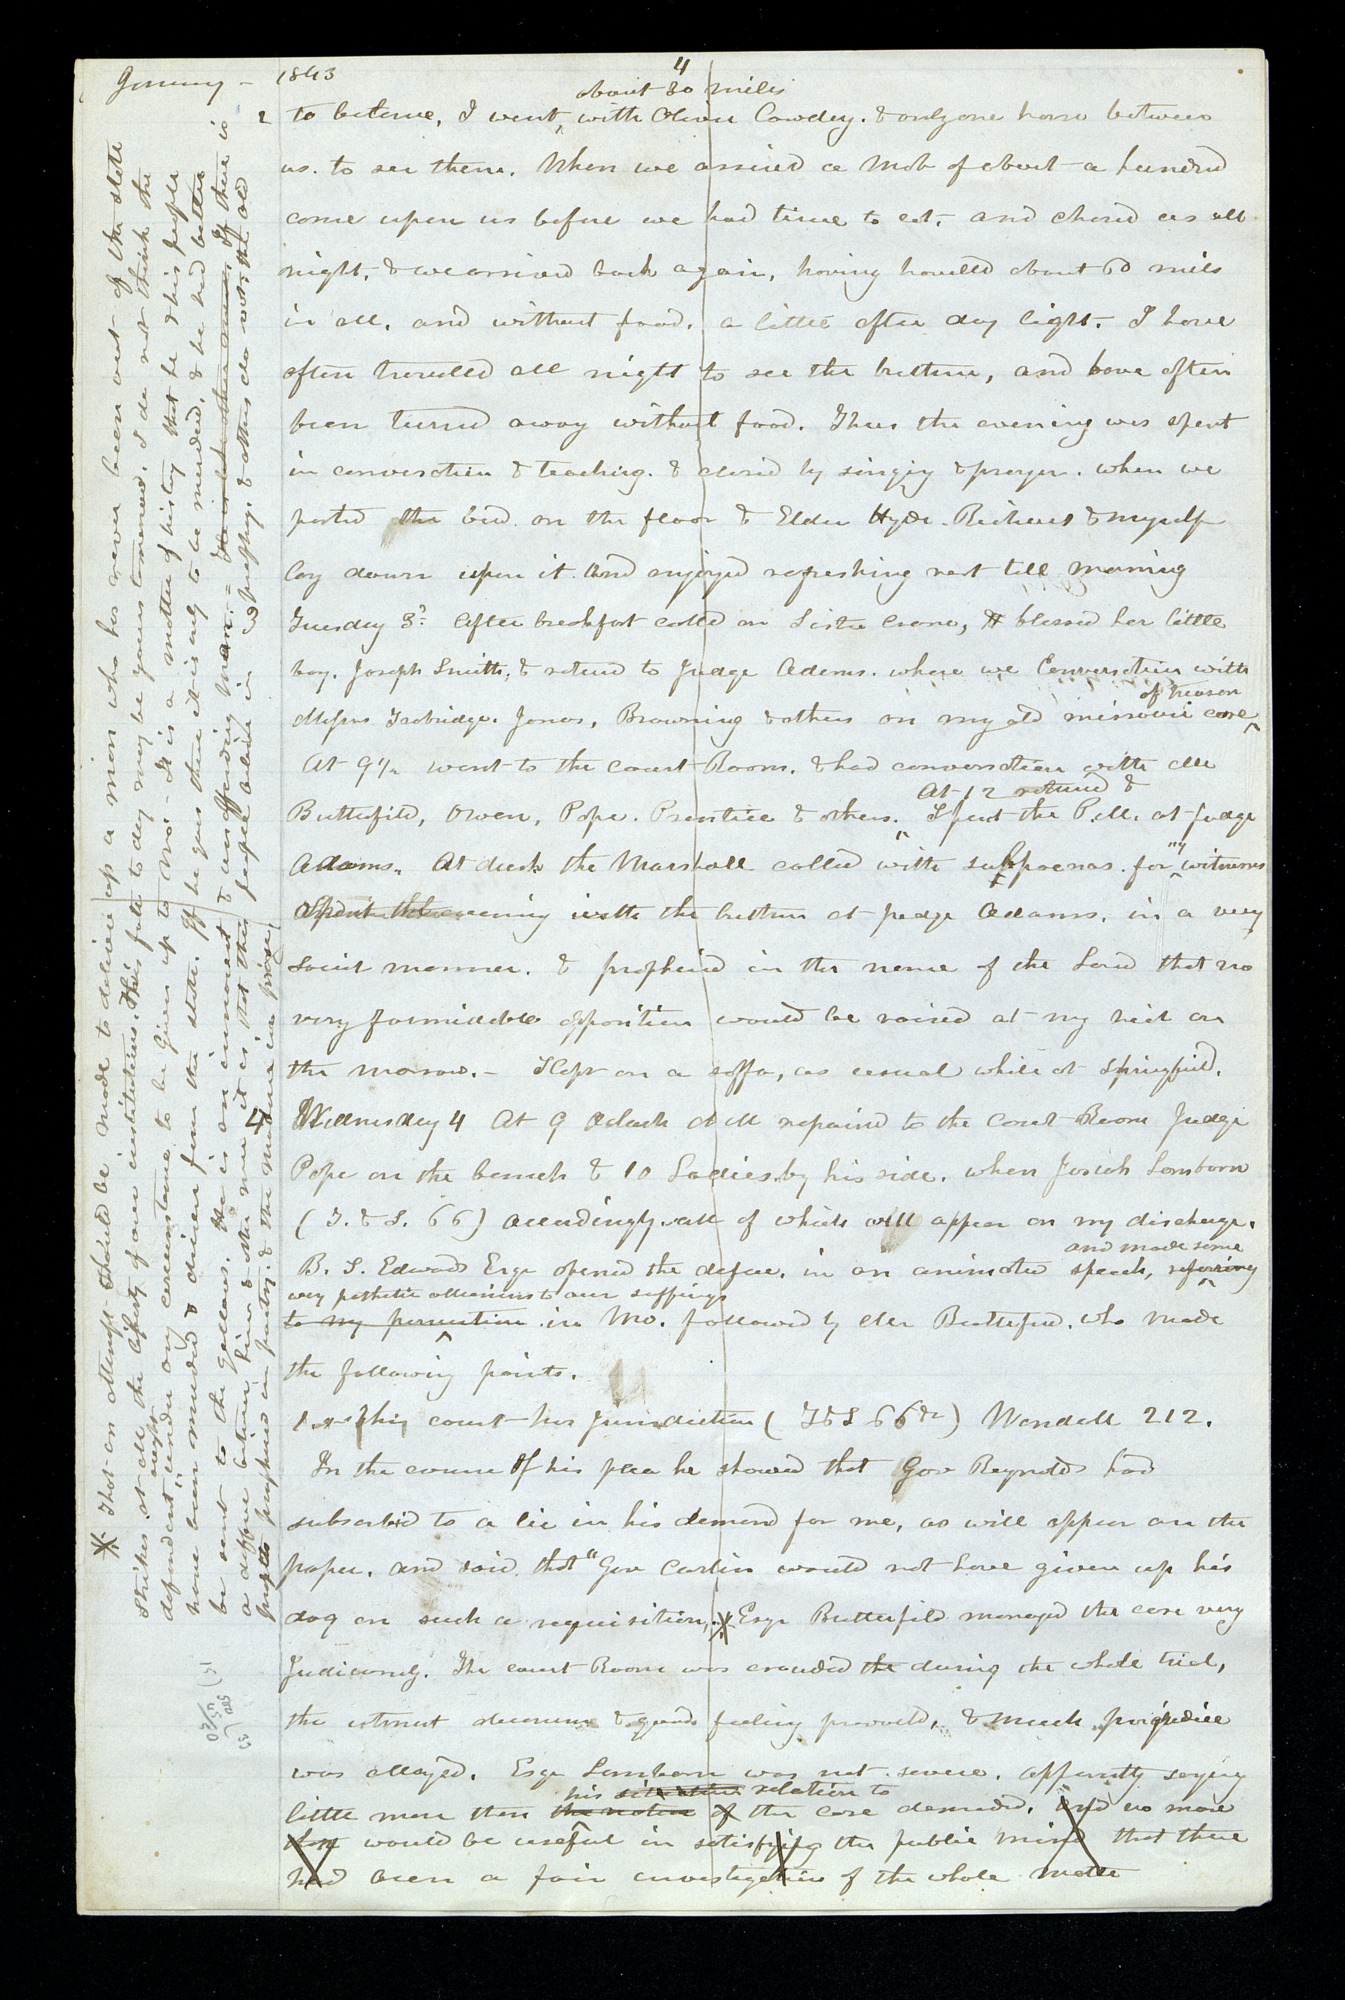 January – 1843
4
about 30 miles
2 to believe, I went with Oliver Cowdey. & only one horse between
us. to see them. When we arrived a mob of about a hundred
come upon us before we had time to eat, and chased us all
night, & we arrived back again, having travelled about 60 miles
in all, and without food, a little after day light. I have
often travelled all night to see the brethren, and have often
been turned away without food. Thus the evening was spent
in conversation & teaching. & closed by singing & prayer. when we
parted the bed on the floor & Elder Hyde. Richards & myself
lay down upon it and enjoyed refreshing rest till morning
Tuesday 3d. After breakfast called on Sister Crane, & blessed her little
boy, Joseph Smith, & returned to Judge Adams. where we Conversation with
of treason
Messrs Trobridge. Jonas, Browning & others on my old missouri case
At 9½ went to the court Room. & had conversation with Mr
At 12 returned &
Butterfield, Owen, Pope. Prentice & others. Spent the P.M. at Judge
Adams. At dusk the Marshall called with subpoenas for my witnesses
Spent the evening with the brethren at judge Adams, in a very
social manner. & prophesied in the name of the Lord that no
very formidable opposition would be raised at my trial on
the morrow. – Slept on a soffa, as usual while at Springfield.
4 Wednesday 4 At 9 Oclock A M repaired to the Court Room Judge
Pope on the bench & 10 Ladies by his side. when Josiah Lamborn
(T. & S. 66) accordingly. all of which will appear on my discharge.
and made some
B. S. Edwards Esqr opened the defence, in an animated speech, referring
very pathetic allusions to our suffings
to my persecution in Mo. followed by Mr Butterfield, who made
the following points.
1st this court has jurisdiction (T & S 66th) Wendell 212.
In the course of his plea he showed that Gov Reynolds had
subscribed to a lie in his demand for me, as will appear on the
paper. and said that "Gov Carlin would not have given up his
dog on such a requisition, * Esqr Butterfield managed the case very
Judiciously. The court Room was crowded the during the whole trial,
the utmost decorum & good feeling prevailed, & much prejudice
was allayed. Esqr Lamborn was not severe, apparently saying
his situation relation to
little more than the nature of the case demanded, and no more
than would be useful in satisfying the public mind that there
had been a fair investigation of the whole matter
* That an attempt should be made to deliver up a man who has never been out of the state
strikes at all the liberty of our institutions. This his fate to day may be yours tomorrow. I do not think the
defendant ought under any circumstance to be given up to Mo. – It is a matter of history that he & his people
have been murdered & driven from the state. If he goes there it is only to be murdered, & he had better
be sent to the gallows. He is an innocent & unoffending man. = If there is
a differe between him & other men it is that this people believe in prophecy, & others do not. the old
prophets prophesied in poetry. & the modern in prose,